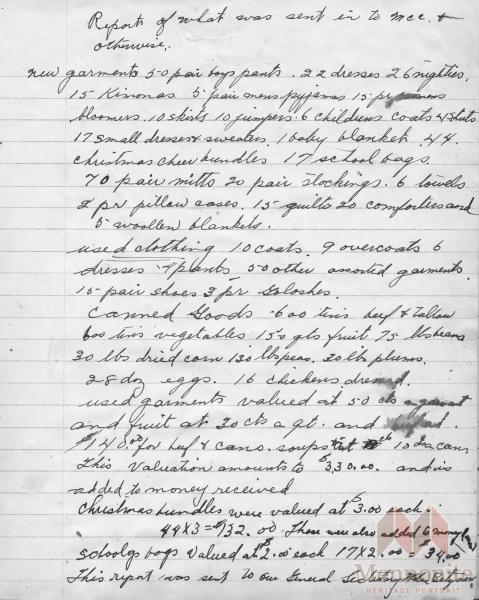 Report of what was sent in to MCC. &
otherwise.
new garments 50 pair boys pants. 22 dresses 26 nighties.
15 Kimonas 5 pair mens pyjamas 15 pr
bloomers. 10 skirts 10 jumpers. 6 childrens coats 4 shirts
17 small dresses & sweaters. 1 baby blanket. 44.
christmas cheer bundles 17 school bags.
70 pair mitts 20 pair stockings. 6 towels
2 pr pillow cases. 15 quilts 20 comforters and
5 woollen blankets.
used clothing 10 coats. 9 overcoats 6
dresses 4 pants 50 other assorted garments.
15 pair shoes 3 pr Goloshes.
Canned Goods - 600 tins beef & Tallow
600 tins vegetables 150 qts fruit 75 lbs beans
30 lbs dried corn 130 lbs peas. 30 lbs plums.
28 doz eggs. 16 chickens dressed.
used garments valued at 50 cts a garment
and fruit at 30 cts a qt. and
$140.00 for beef & cans. soups at 10 a can
This valuation amounts to $330.00. and is
added to money received
Christmas bundles were valued at $3.00 each.
44 X 3 = $132.00 These were also added to money
schoolgs bags valued at $2.00 each 17 X 2.00 = $34.00
This report was sent to our General Secretary
Mennonite
HERITAGE PORTRAIT